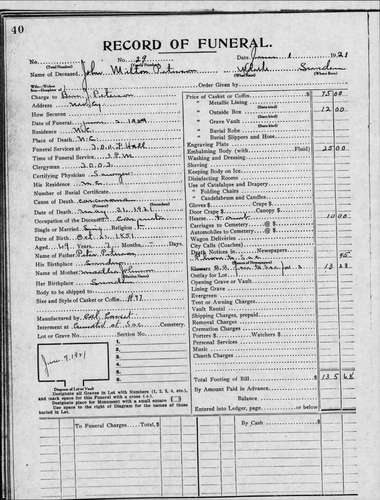 40
RECORD OF FUNERAL.
No. No. 29 Date June 1 1921
(Total Number) (Yearly Number)
Name of Deceased John Milton Peterson White Sweden
(What Race) (Where Born)
Charge to Peterson
Address
How Secured
Date of Funeral June 2 1921
Residence N.C.
Place of Death N.C.
Funeral Services at I.O.O.F Hall
Time of Funeral Service 3 P.M
Clergyman I.O.O.F.
Certifying Physician Sawyer
His Residence N.C.
Number of Burial Certificate
Cause of Death carcinoma
Date of Death May 31, 1921
Occupation of the Deceased Carpenter
Single or Married Sing Religion
Date of Birth Oct 31 1851
Aged 69 Years 7 Months Days
Name of Father Peter Peterson
His Birthplace Sweden
Name of Mother Johnson
(Maiden Name)
Her Birthplace Sweden
Body to be shipped to
Size and Style of Casket or Coffin #97
Manufactured by Cal Casket
Interment at Sac. Cemetery.
Lot or Grave No. Section No.
June 9, 1921
1
2
3
4
5
6
Diagram of Lot or Vault
Designate all Graves in Lot with Numbers (1, 2, 3, 4, etc.),
and mark space for this Funeral with a cross (+).
Designate place for Monument with a small square
Use space to the right of Diagram for the names of those
buried in Lot.
Order Given by
Price of Casket or Coffin $ 75 00
" Metallic Lining
(State kind)
" Outside Box 12 00
(State kind)
" Grave Vault
(State kind)
" Burial Robe
(State kind)
" Burial Slippers and Hose
Engraving Plate
Embalming Body (with Fluid) 25 00
Washing and Dressing
Shaving
Keeping Body on Ice
Disinfecting Rooms
Use of Catafalque and Drapery
" Folding Chairs
" Candelabrum and Candles
Gloves $ Crape $
Door Crape $
Hearse 10 00
Carriages to Cemetery @ $
Automobiles to Cemetery @ $
Wagon Deliveries
City Calls (Coach)
Death Notices in Newspapers
Phone to Sac 95
(Names of Newspapers)
Flowers R.R. 13 23
Outlay for Lot
Opening Grave or Vault
Lining Grave
Evergreen
Tent or Awning Charges
Vault Rental
Shipping Charges, prepaid
Removal Charges
Cremation Charges
Porters $ Watchers $
Personal Services
Music
Church Charges
Total Footing of Bill $
By Amount Paid in Advance
Balance
Entered into Ledger, page or below
To Funeral Charges Total, $
By Cash $